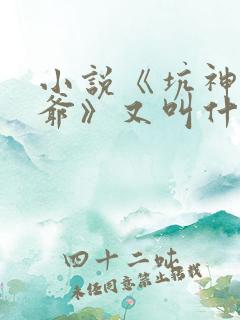 小说《坑神
爺》又叫什
四十二吡
未经同意禁止转载